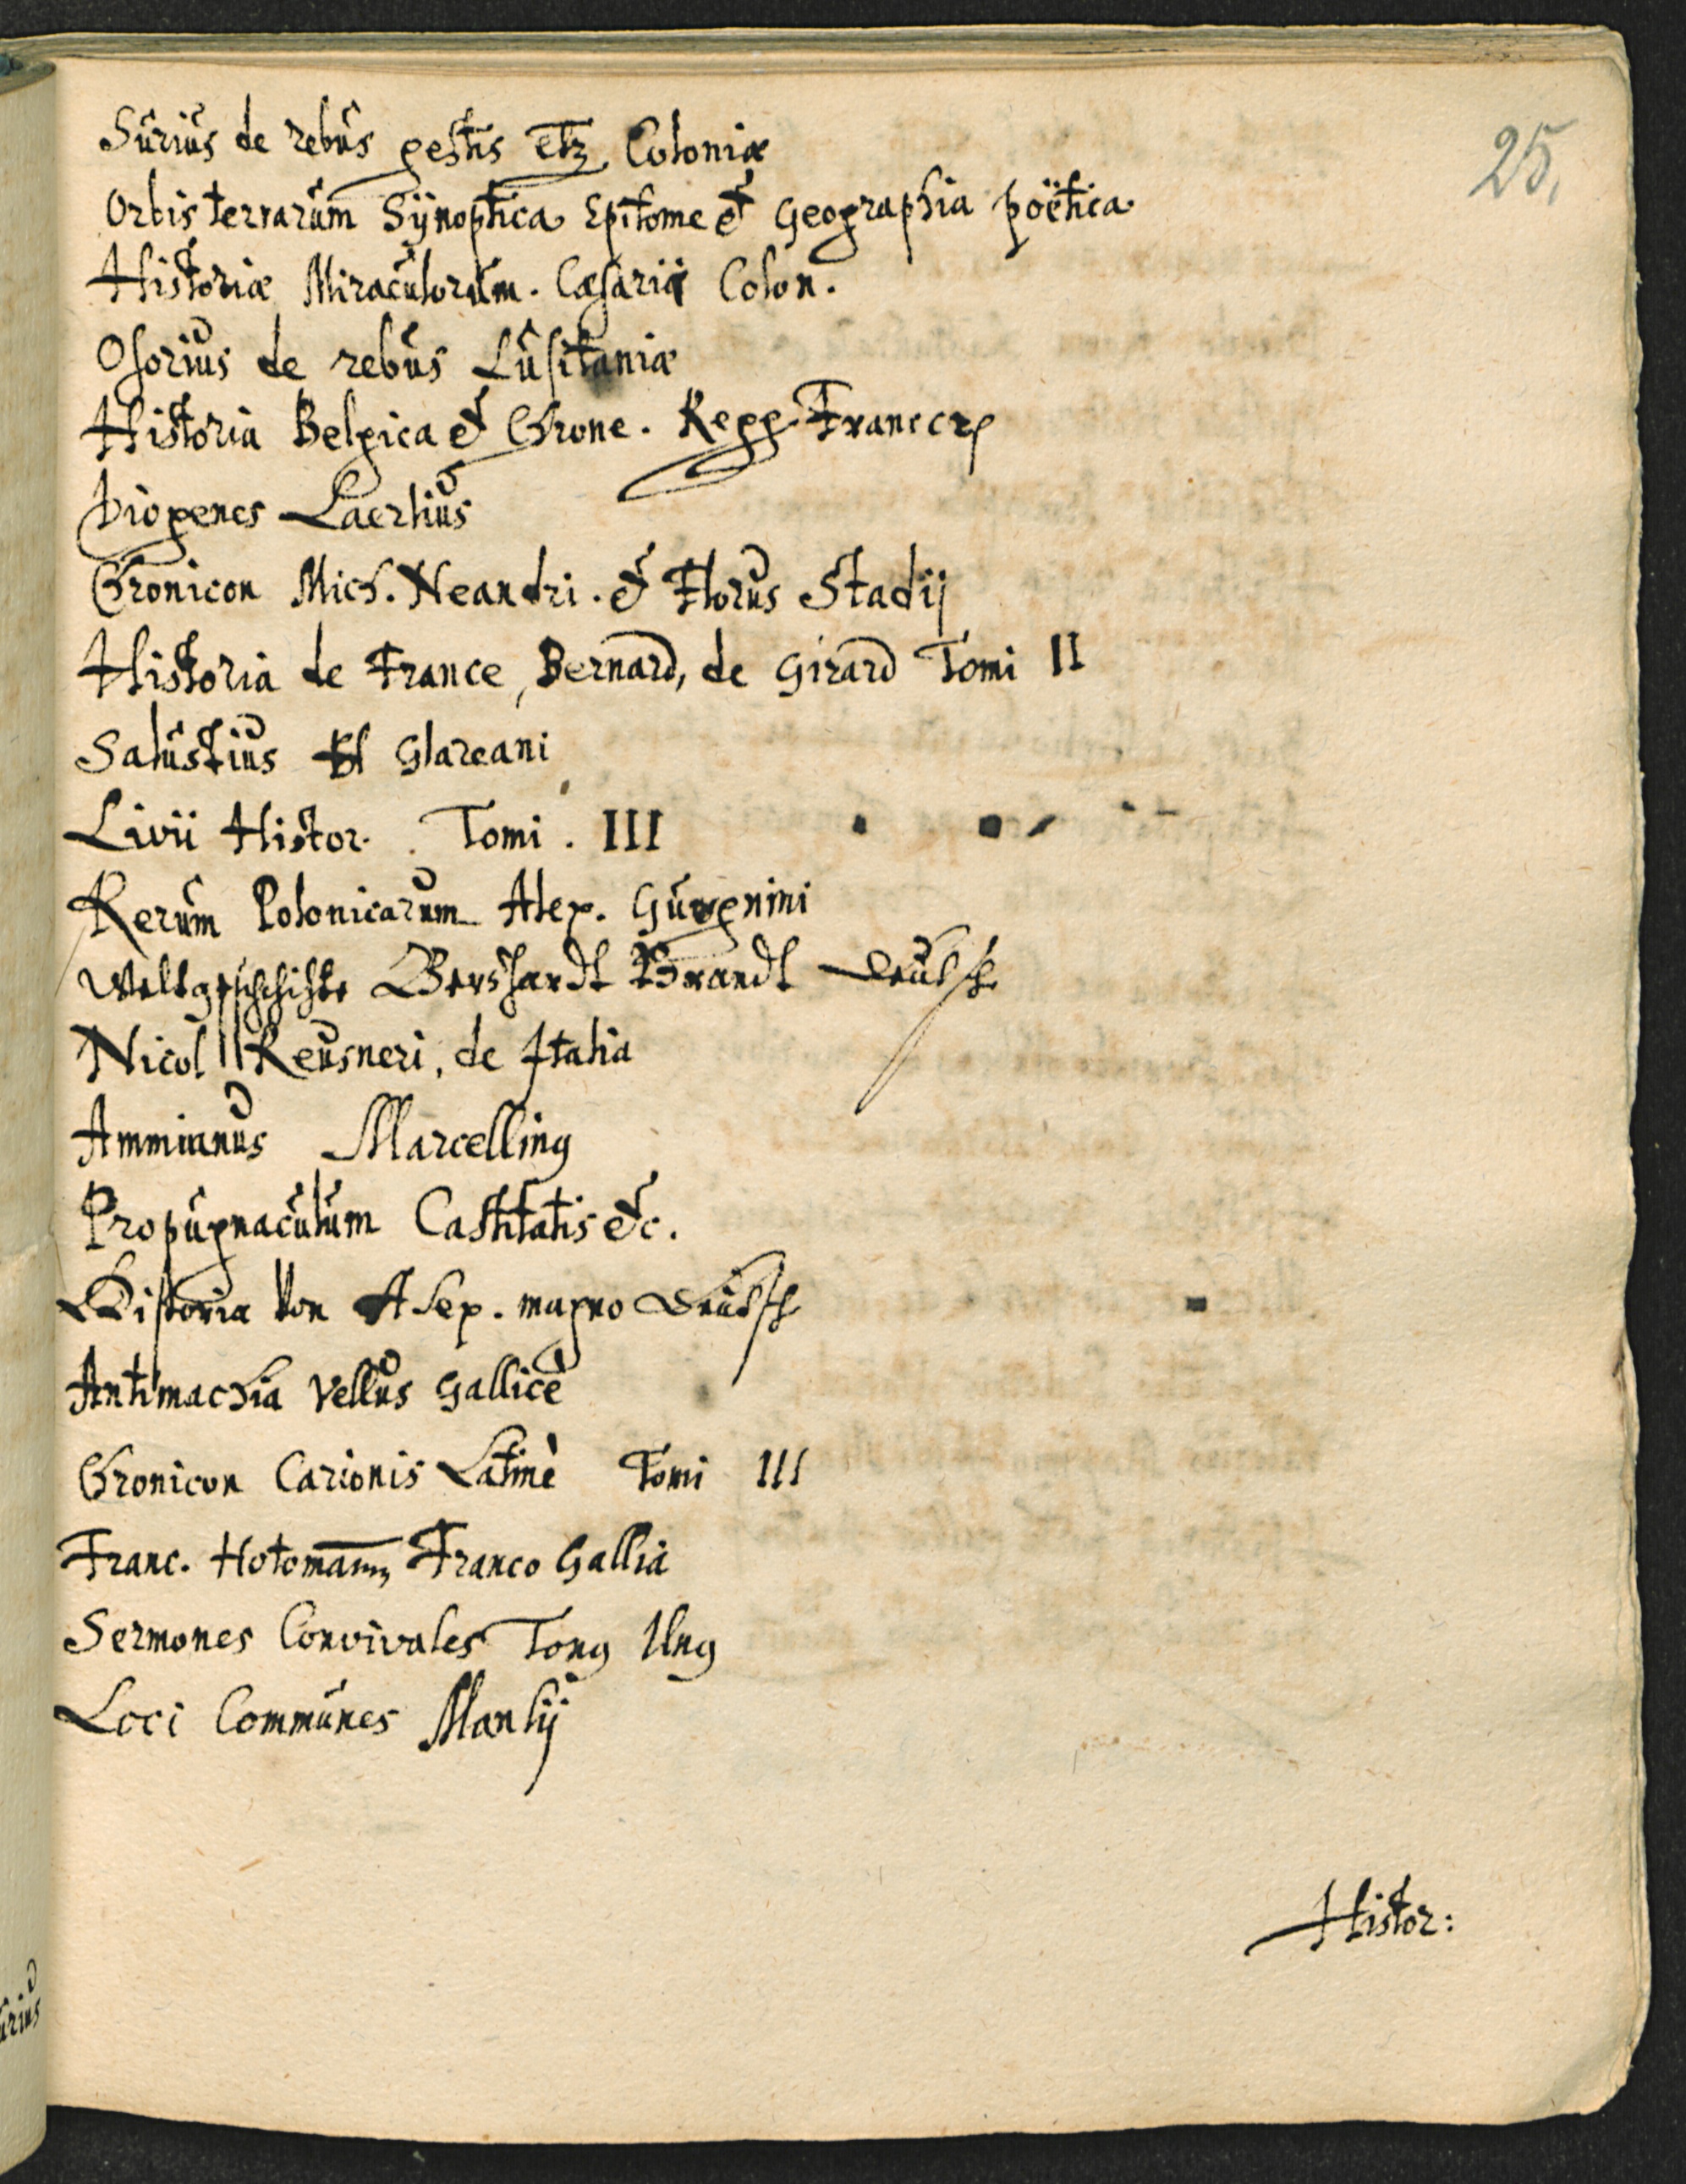 25.
Surius de rebus gestis etz. Coloniæ
Orbis terrarum Sÿnoptica Epitome et Geographia poëtica
Historiæ Miraculorum. Cæsarij Colon.
Osorius de rebus Lusitaniæ
Historia Belgica et Chrone. Regg. Francor
Diogenes Laertius
Chronicon Mich. Neandri. et Florus Stadij
Historia de France, Bernard, de Girard Tomi II
Salustius Glareani
Livii Histor. Tomi. III
Rerum Polonicarum Alex. Guagnini
Weltgeschichte Bershardt Brandt Deutsch
Nicol Reusneri, de Italia
Ammianus Marcellinꝰ
Propugnaculum Castitatis etc.
Historia von Alex. magno Deutsch
Antimachia Vellus Gallicè
Chronicon Carionis Latinè Tomi III
Franc. Hotomann Franco Gallia
Sermones Convivales Tomꝰ Unꝰ
Loci Communes Manlij
Histor:
urius